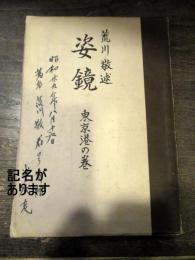 荒川 敬述
姿鏡
東京港の巻
昭和廿九年八月十六日
荒川敬
記名が
あります